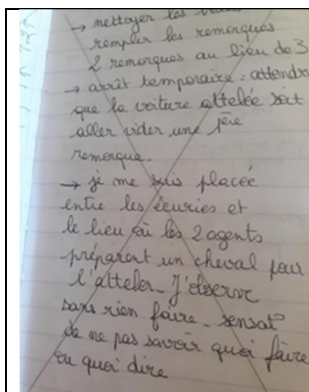 → nettoyer les
remplir les remorques
2 remorques au lieu de 3
→ arrêt temporaire : attendre
que la voiture attelée soit
aller vider une 1ère
remorque.
→ je me suis placée
entre les écuries et
le lieu où les 2 agents
préparent un cheval pour
l'atteler. J'observe
sans rien faire. sensat°
de ne pas savoir quoi faire
ou quoi dire